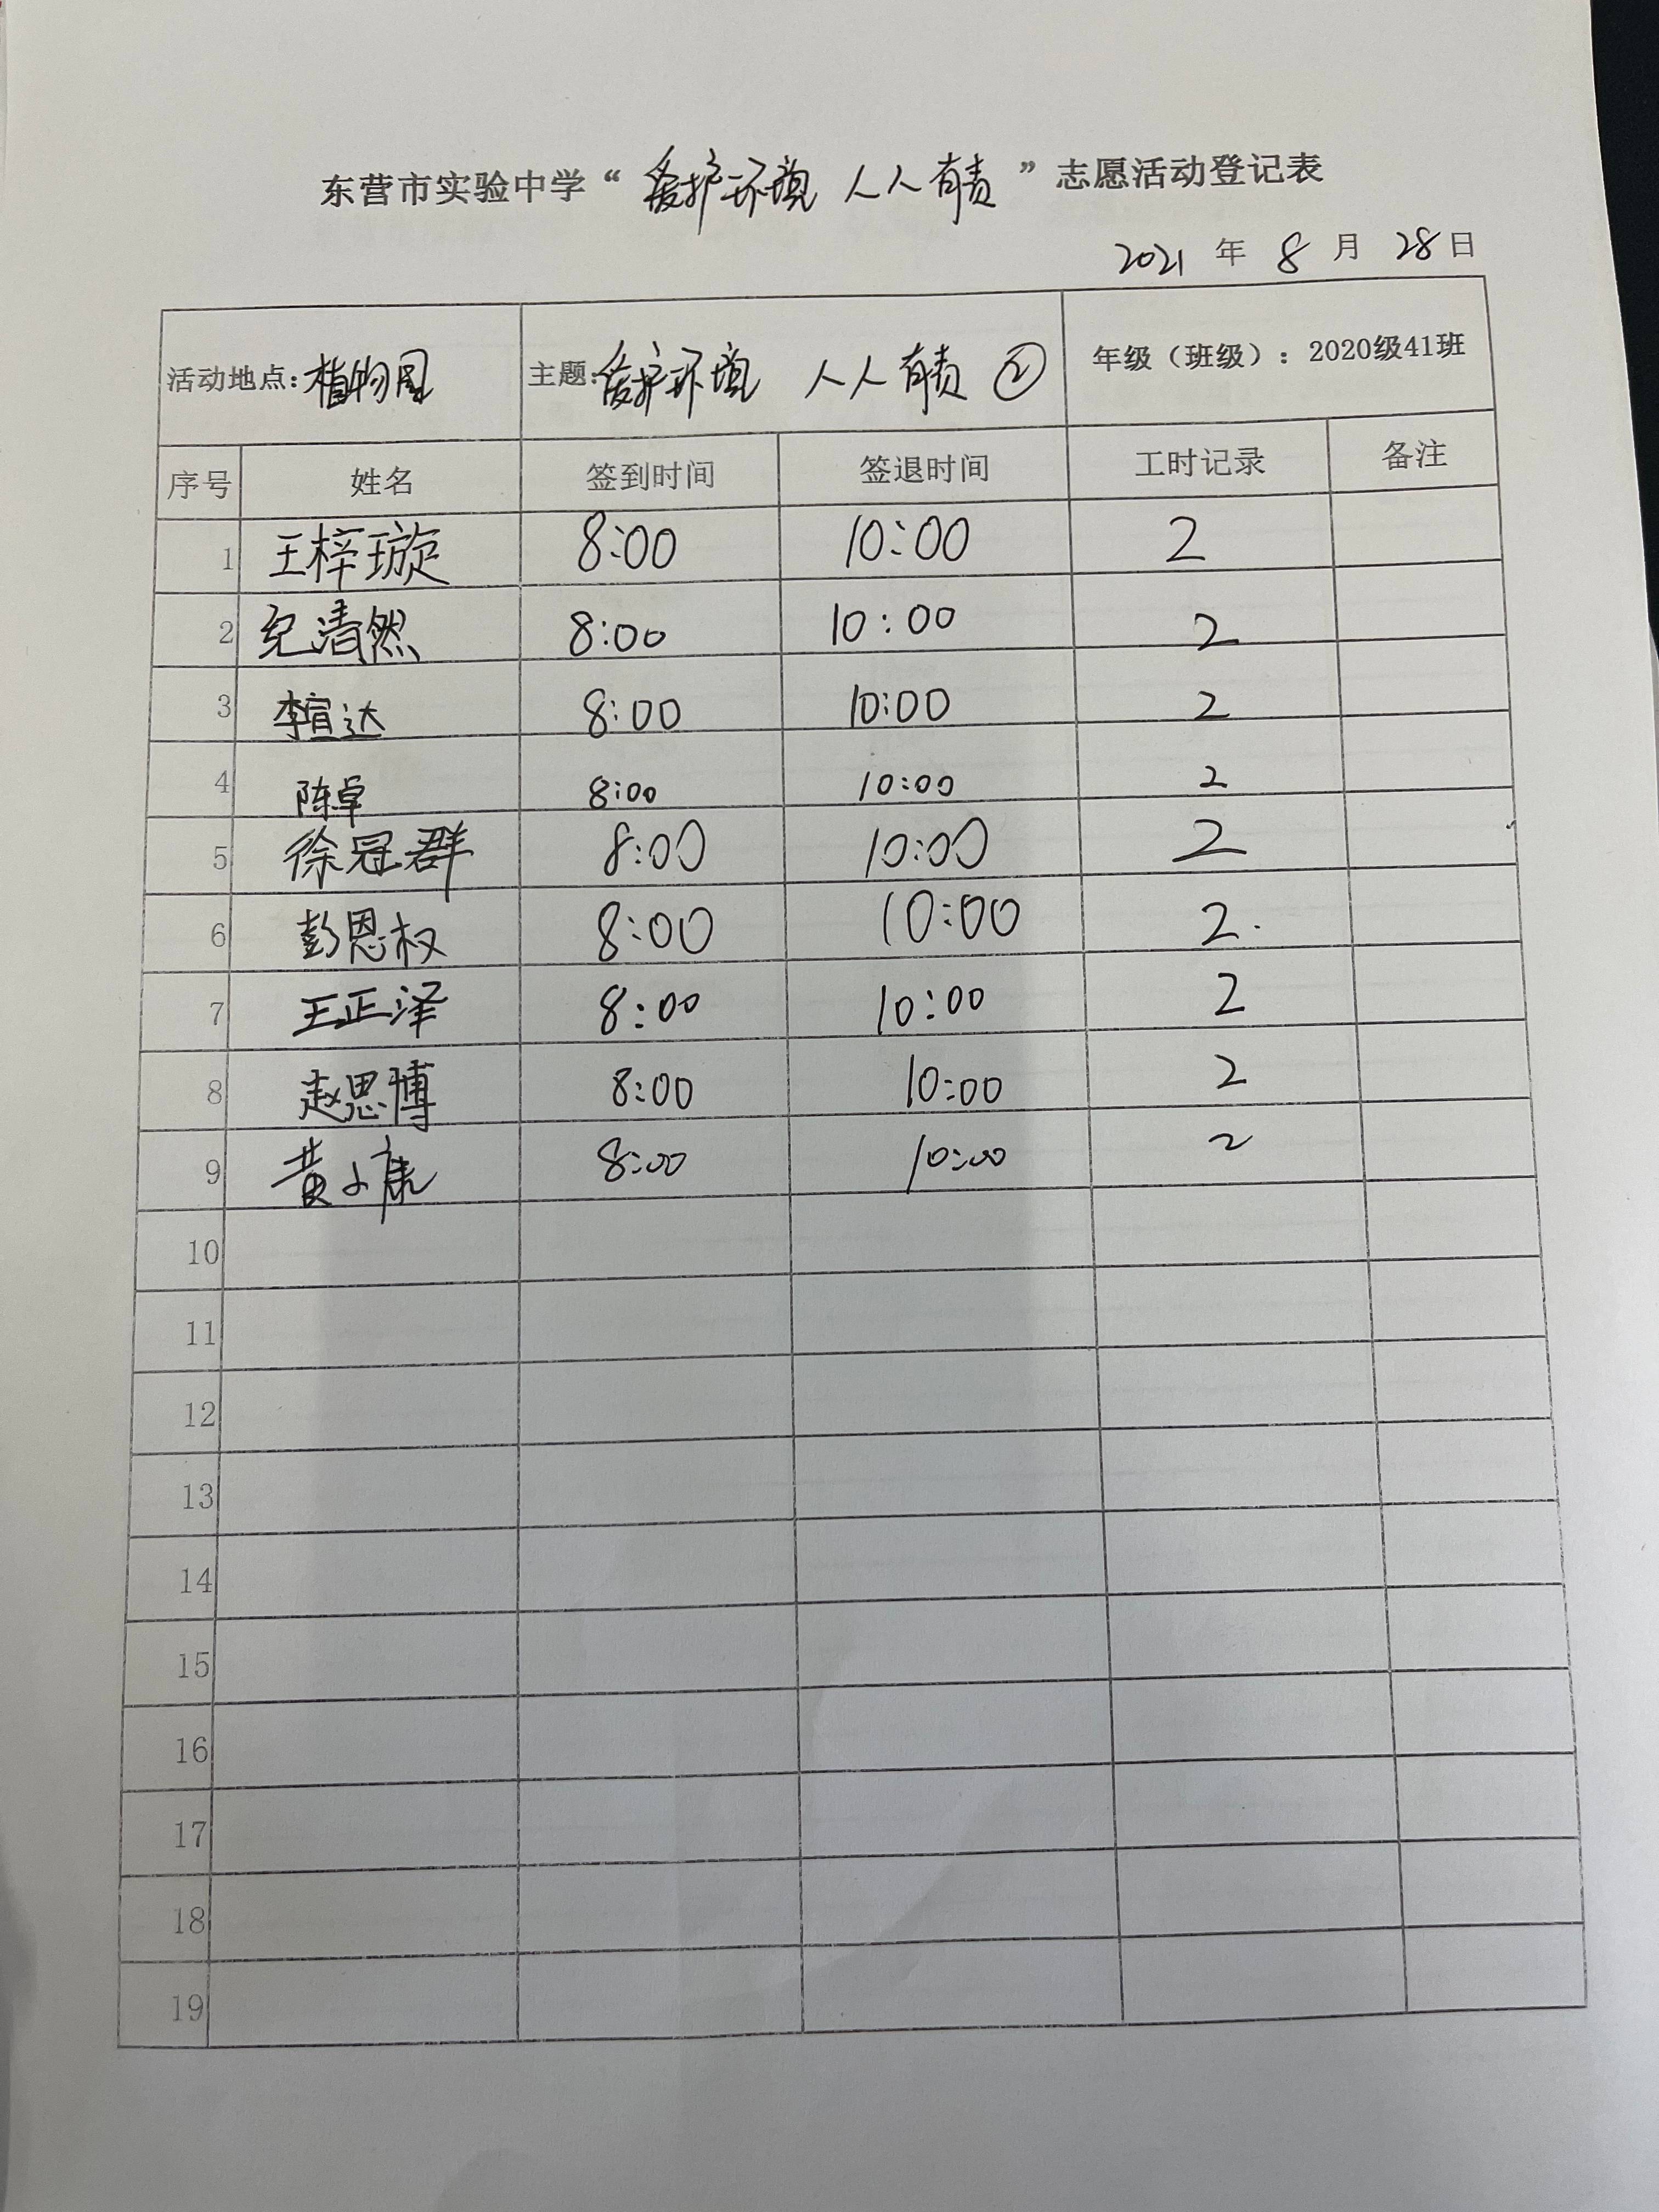 东营市实验中学“爱护环境 人人有责”志愿活动登记表
2021 年 8 月 28日
活动地点:植物园 主题:爱护环境 人人有责 ② 年级（班级）：2020级41班
序号 姓名 签到时间 签退时间 工时记录 备注
1 王梓璇 8:00 10:00 2
2 纪清然 8:00 10:00 2
3 李宣达 8:00 10:00 2
4 陈卓 8:00 10:00 2
5 徐冠群 8:00 10:00 2
6 彭恩权 8:00 10:00 2.
7 王正泽 8:00 10:00 2
8 赵思博 8:00 10:00 2
9 黄 康 8:00 10:00 2
10
11
12
13
14
15
16
17
18
19